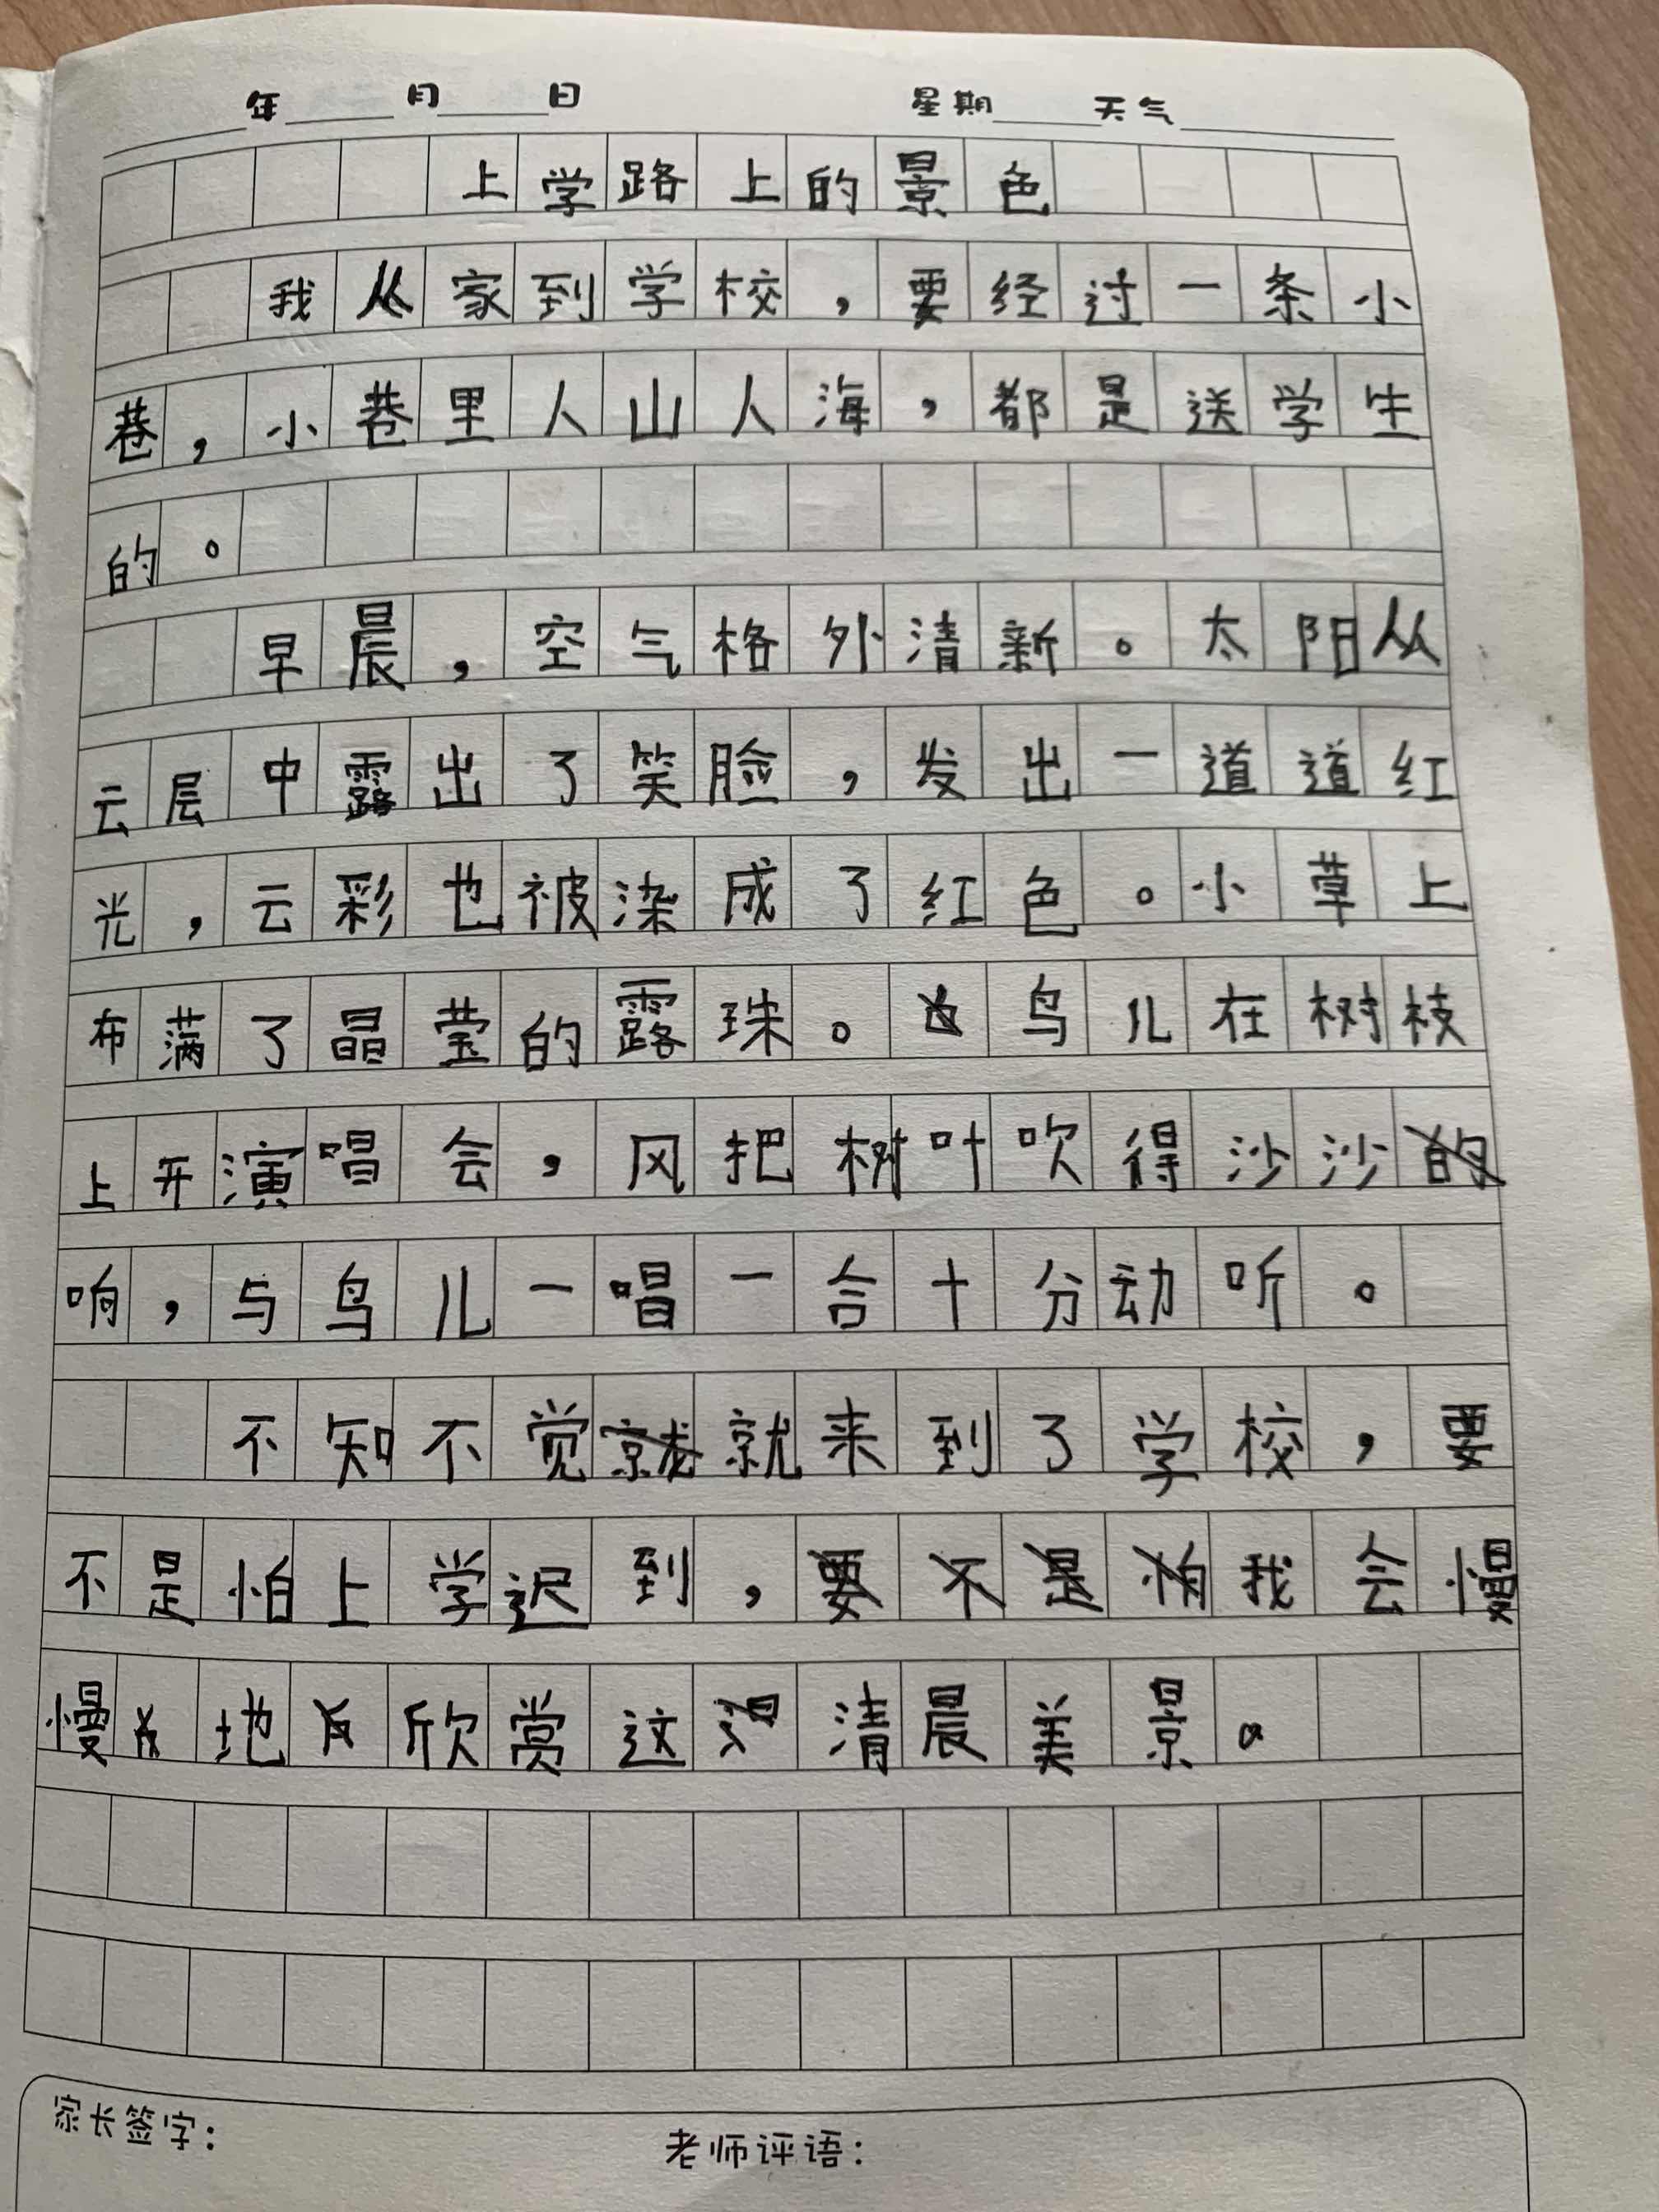 年 月 日 星期 天气
上学路上的景色
我从家到学校，要经过一条小
巷，小巷里人山人海，都是送学生
的。
早晨，空气格外清新。太阳从
云层中露出了笑脸，发出一道道红
光，云彩也被染成了红色。小草上
布满了晶莹的露珠。鸟儿在树枝
上开演唱会，风把树叶吹得沙沙
响，与鸟儿一唱一合十分动听。
不知不觉就来到了学校，要
不是怕上学迟到，我会慢
慢地欣赏这清晨美景。
家长签字： 老师评语：